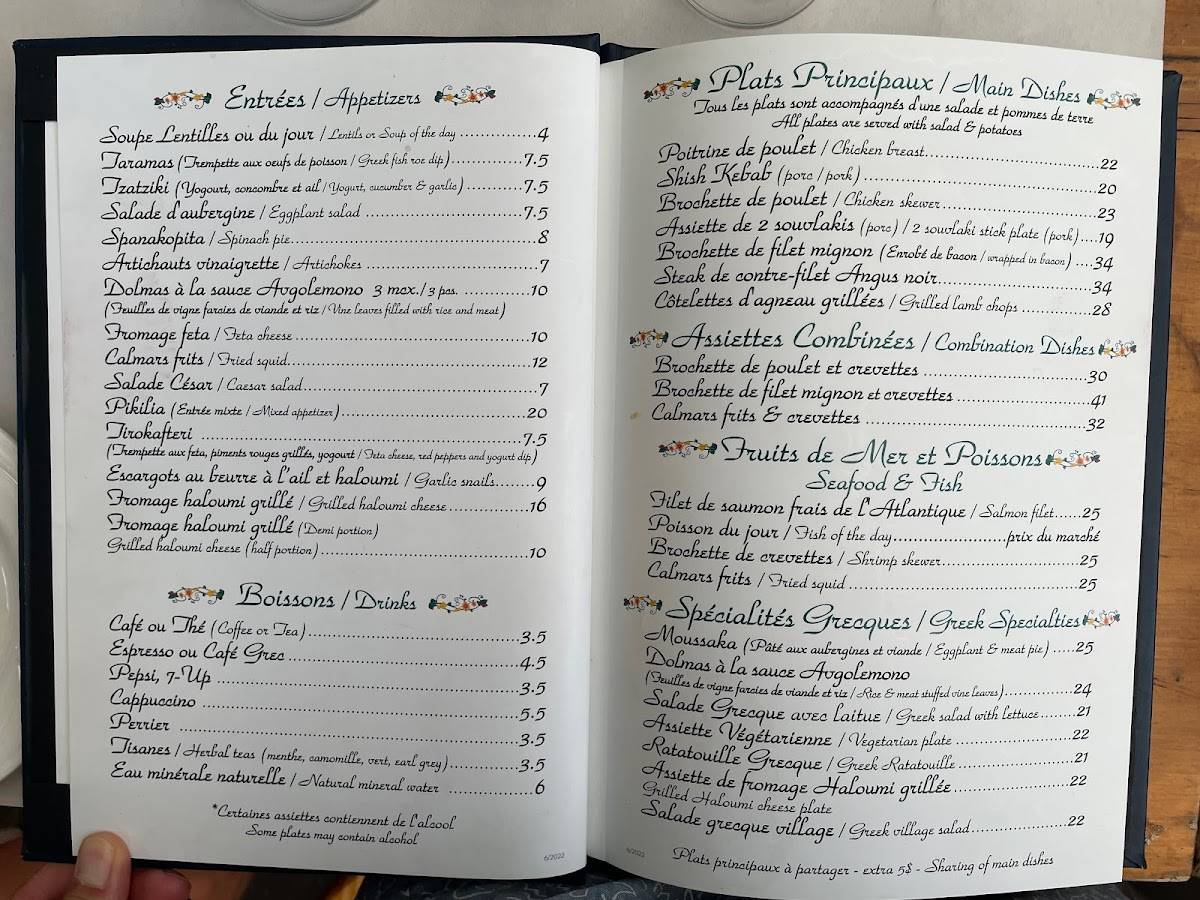 Entrées / Appetizers
Soupe Lentilles ou du jour / Lentils or Soup of the day ................4
Taramas (Trempette aux oeufs de poisson / Greek fish roe dip) ...............7.5
Tzatziki (Yogourt, concombre et ail / Yogurt, cucumber & garlic) ............7.5
Salade d'aubergine / Eggplant salad ................7.5
Spanakopita / Spinach pie................8
Artichauts vinaigrette / Artichokes ................7
Dolmas à la sauce Avgolemono 3 mcx./3 pcs. ................10
(Feuilles de vigne farcies de viande et riz / Vine leaves filled with rice and meat)
Fromage feta / Feta cheese ................10
Calmars frits / Fried squid................12
Salade César / Caesar salad................7
Pikilia (Entrée mixte / Mixed appetizer)................20
Tirokafteri ................7.5
(Trempette aux feta, piments rouges grillés, yogourt / Feta cheese, red peppers and yogurt dip)
Escargots au beurre à l'ail et haloumi / Garlic snails.........9
Fromage haloumi grillé / Grilled haloumi cheese................16
Fromage haloumi grillé (Demi portion)
Grilled haloumi cheese (half portion)................10
Boissons / Drinks
Café ou Thé (Coffee or Tea)................3.5
Espresso ou Café Grec................4.5
Pepsi, 7-Up ................3.5
Cappuccino ................5.5
Perrier ................3.5
Tisanes / Herbal teas (menthe, camomille, vert, earl grey)................3.5
Eau minérale naturelle / Natural mineral water ................6
*Certaines assiettes contiennent de l'alcool
Some plates may contain alcohol
6/2022
Plats Principaux / Main Dishes
Tous les plats sont accompagnés d'une salade et pommes de terre
All plates are served with salad & potatoes
Poitrine de poulet / Chicken breast................22
Shish Kebab (porc / pork) ................20
Brochette de poulet / Chicken skewer................23
Assiette de 2 souvlakis (porc) / 2 souvlaki stick plate (pork)....19
Brochette de filet mignon (Enrobé de bacon / wrapped in bacon) ....34
Steak de contre-filet Angus noir................34
Côtelettes d'agneau grillées / Grilled lamb chops ..............28
Assiettes Combinées / Combination Dishes
Brochette de poulet et crevettes ................30
Brochette de filet mignon et crevettes ................41
Calmars frits & crevettes ................32
Fruits de Mer et Poissons
Seafood & Fish
Filet de saumon frais de l'Atlantique / Salmon filet......25
Poisson du jour / Fish of the day................prix du marché
Brochette de crevettes / Shrimp skewer................25
Calmars frits / Fried squid ................25
Spécialités Grecques / Greek Specialties
Moussaka (Pâté aux aubergines et viande / Eggplant & meat pie) .....25
Dolmas à la sauce Avgolemono
(Feuilles de vigne farcies de viande et riz / Rice & meat stuffed vine leaves)..............24
Salade Grecque avec laitue / Greek salad with lettuce........21
Assiette Végétarienne / Vegetarian plate ................22
Ratatouille Grecque / Greek Ratatouille ................21
Assiette de fromage Haloumi grillée................22
Grilled Haloumi cheese plate
Salade grecque village / Greek village salad................22
6/2022
Plats principaux à partager - extra 5$ - Sharing of main dishes